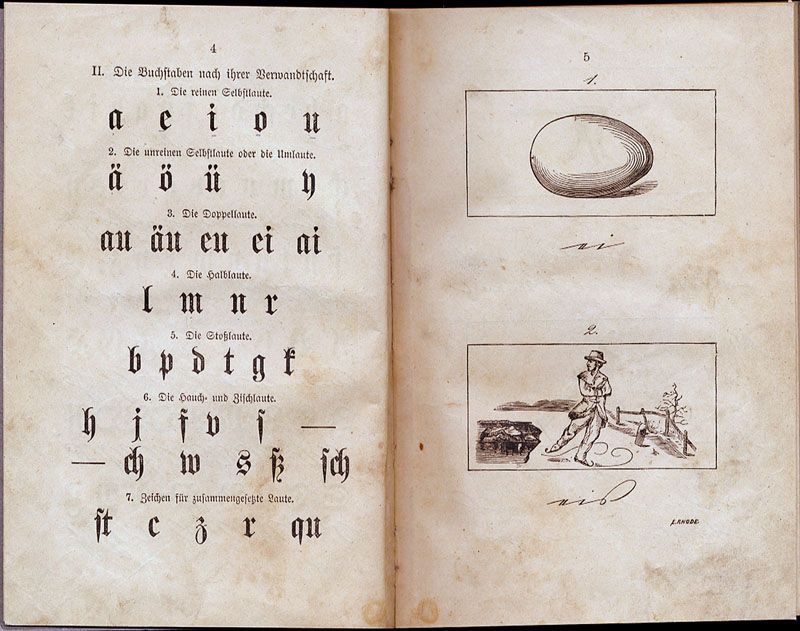 4
II. Die Buchſtaben nach ihrer Verwandtſchaft.
1. Die reinen Selbſtlaute.
a e i o u
2. Die unreinen Selbſtlaute oder die Umlaute.
ä ö ü y
3. Die Doppellaute.
au äu eu ei ai
4. Die Halblaute.
l m n r
5. Die Stoßlaute.
b p d t g k
6. Die Hauch- und Ziſchlaute.
h j f v ſ —
— ch w s ß ſch
7. Zeichen für zuſammengeſetzte Laute.
ſt c z x qu
5
1.
ei
2.
eis
E.RHODE.